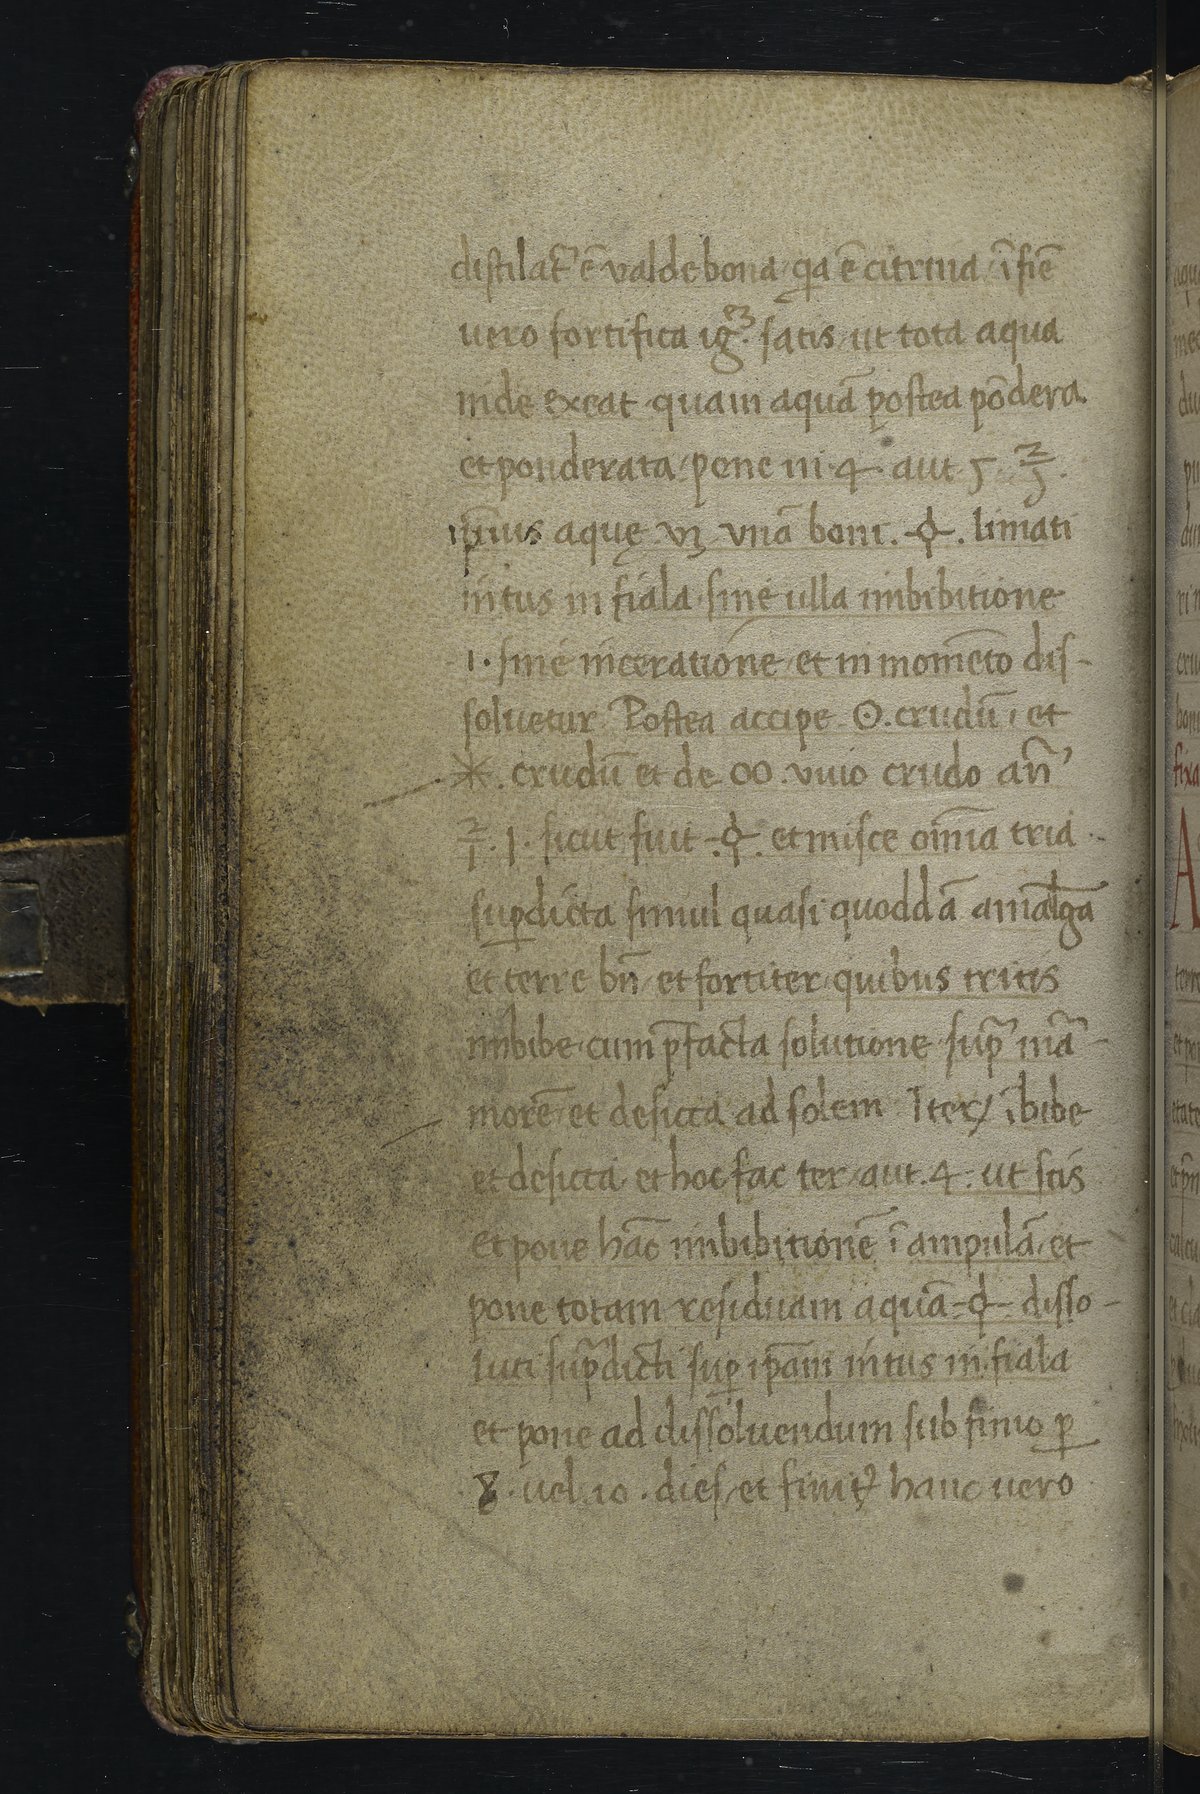 distilat᷒ ē valde bona qa ē citrina ī fiē
vero fortifica igē satis ut tota aqua
inde exeat quam aquā postea pōdera
et ponderata pone in 4 aut 5 ℥
ip̄ius aquę vȝ vnā boni . limati
intus in fiala sine ulla imbibitione
1. sine inceratione et in momēto dis-
soluetur Postea accipe ☉. crudū, et
*. crudū et de ∞. vivo crudo an̄
1. sicut fuit et misce omīa tria
supdicta simul quasi quoddā amalga
et terre bn̄ et fortiter quibus tritis
imbibe cum p̄facta solutione sup̄ mā
morē et desicca ad solem Iter, ībibe
et desicca et hoc fac ter aut .4. ut scis
et pone hāc imbibitionē ī ampulā et
pone totam residuam aquā disso-
luti sup̄dicti sup ip̄am intus in fiala
et pone ad dissoluendum sub fimo p
8. uel 10. dies et finit᷒ hanc uero